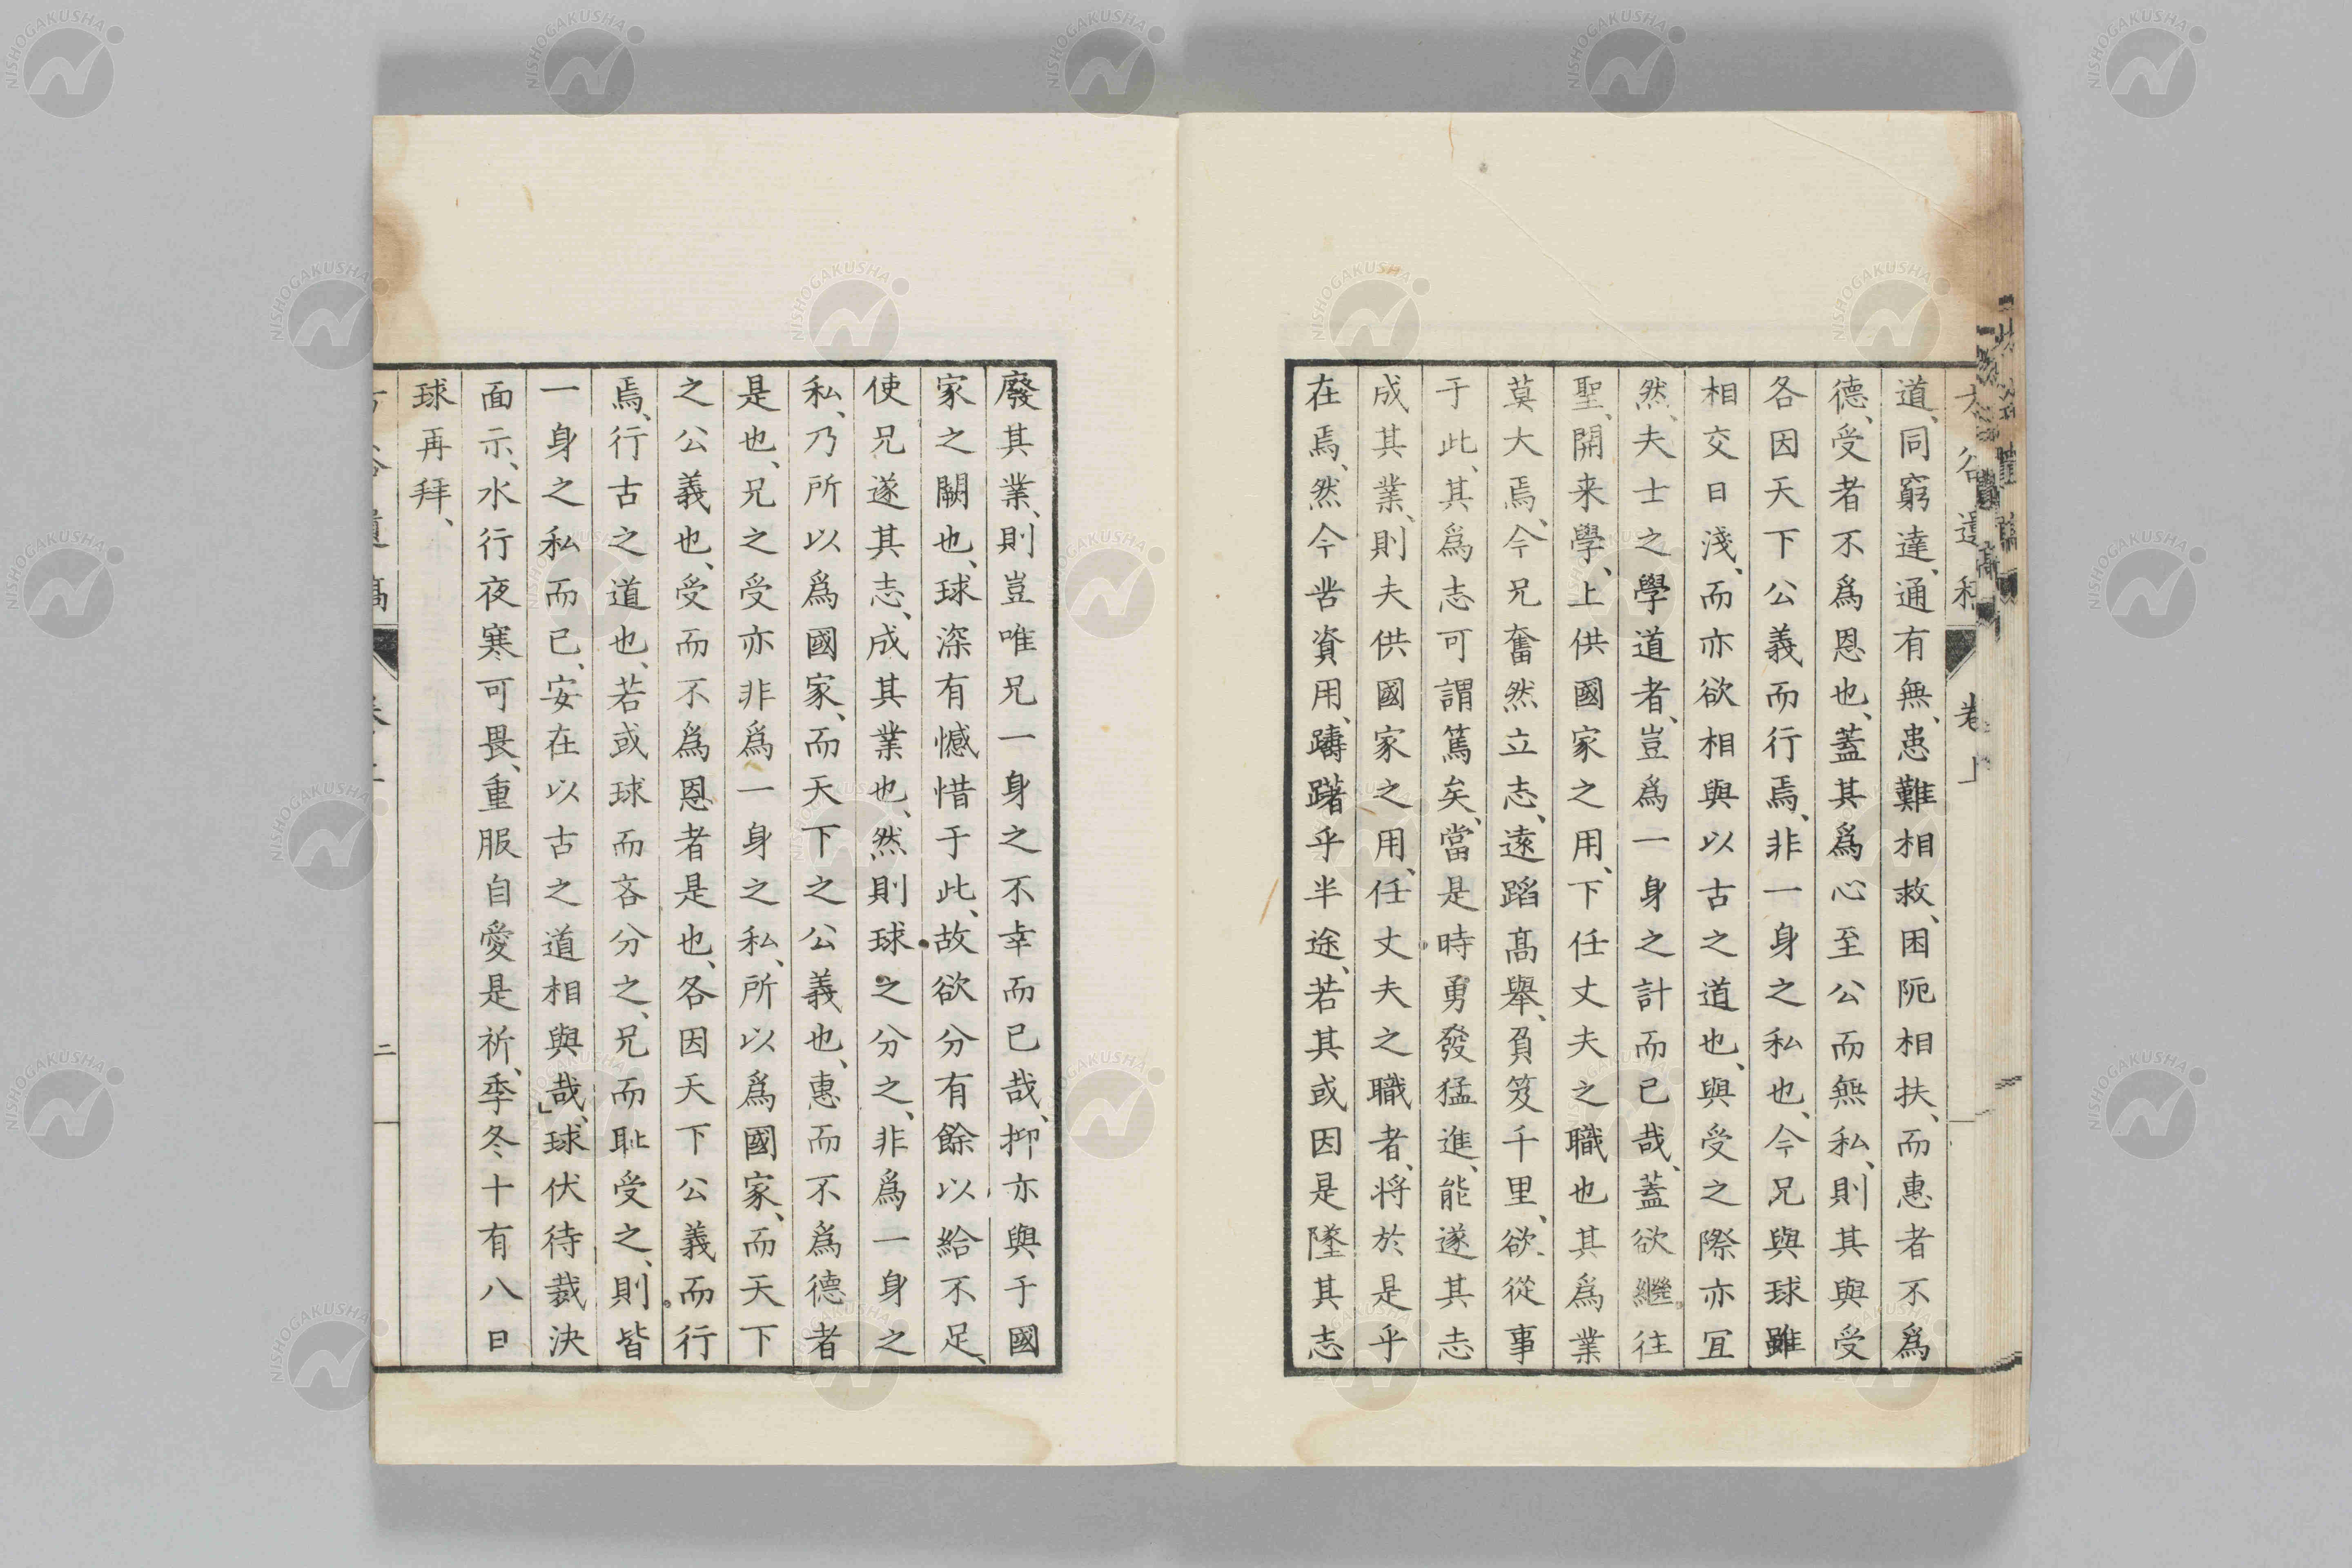 道、同窮達、通有無、患難相救、困阨相扶、而惠者不爲
德、受者不爲恩也、蓋其爲心至公而無私、則其與受
各因天下公義而行焉、非一身之私也、今兄與球雖
相交日淺、而亦欲相與以古之道也、與受之際亦宜
然、夫士之學道者、豈爲一身之計而已哉、蓋欲繼往
聖、開来學、上供國家之用、下任丈夫之職也其爲業
莫大焉、今兄奮然立志、遠蹈髙舉、負笈千里、欲從事
于此、其爲志可謂篤矣、當是時勇發猛進、能遂其志
成其業、則夫供國家之用、任丈夫之職者、将於是乎
在焉、然今甞資用、躊躇乎半途、若其或因是墜其志
廢其業、則豈唯兄一身之不幸而已哉、抑亦與于國
家之闕也、球深有憾惜于此、故欲分有餘以給不足、
使兄遂其志、成其業也、然則球之分之、非爲一身之
私、乃所以爲國家、而天下之公義也、惠而不爲德者
是也、兄之受亦非爲一身之私、所以爲國家、而天下
之公義也、受而不爲恩者是也、各因天下公義而行
焉、行古之道也、若或球而吝分之、兄而耻受之、則皆
一身之私而已、安在以古之道相與哉、」球伏待裁決
面示、水行夜寒可畏、重服自愛是祈、季冬十有八日
球再拜、
二
NISHOGAKUSHA